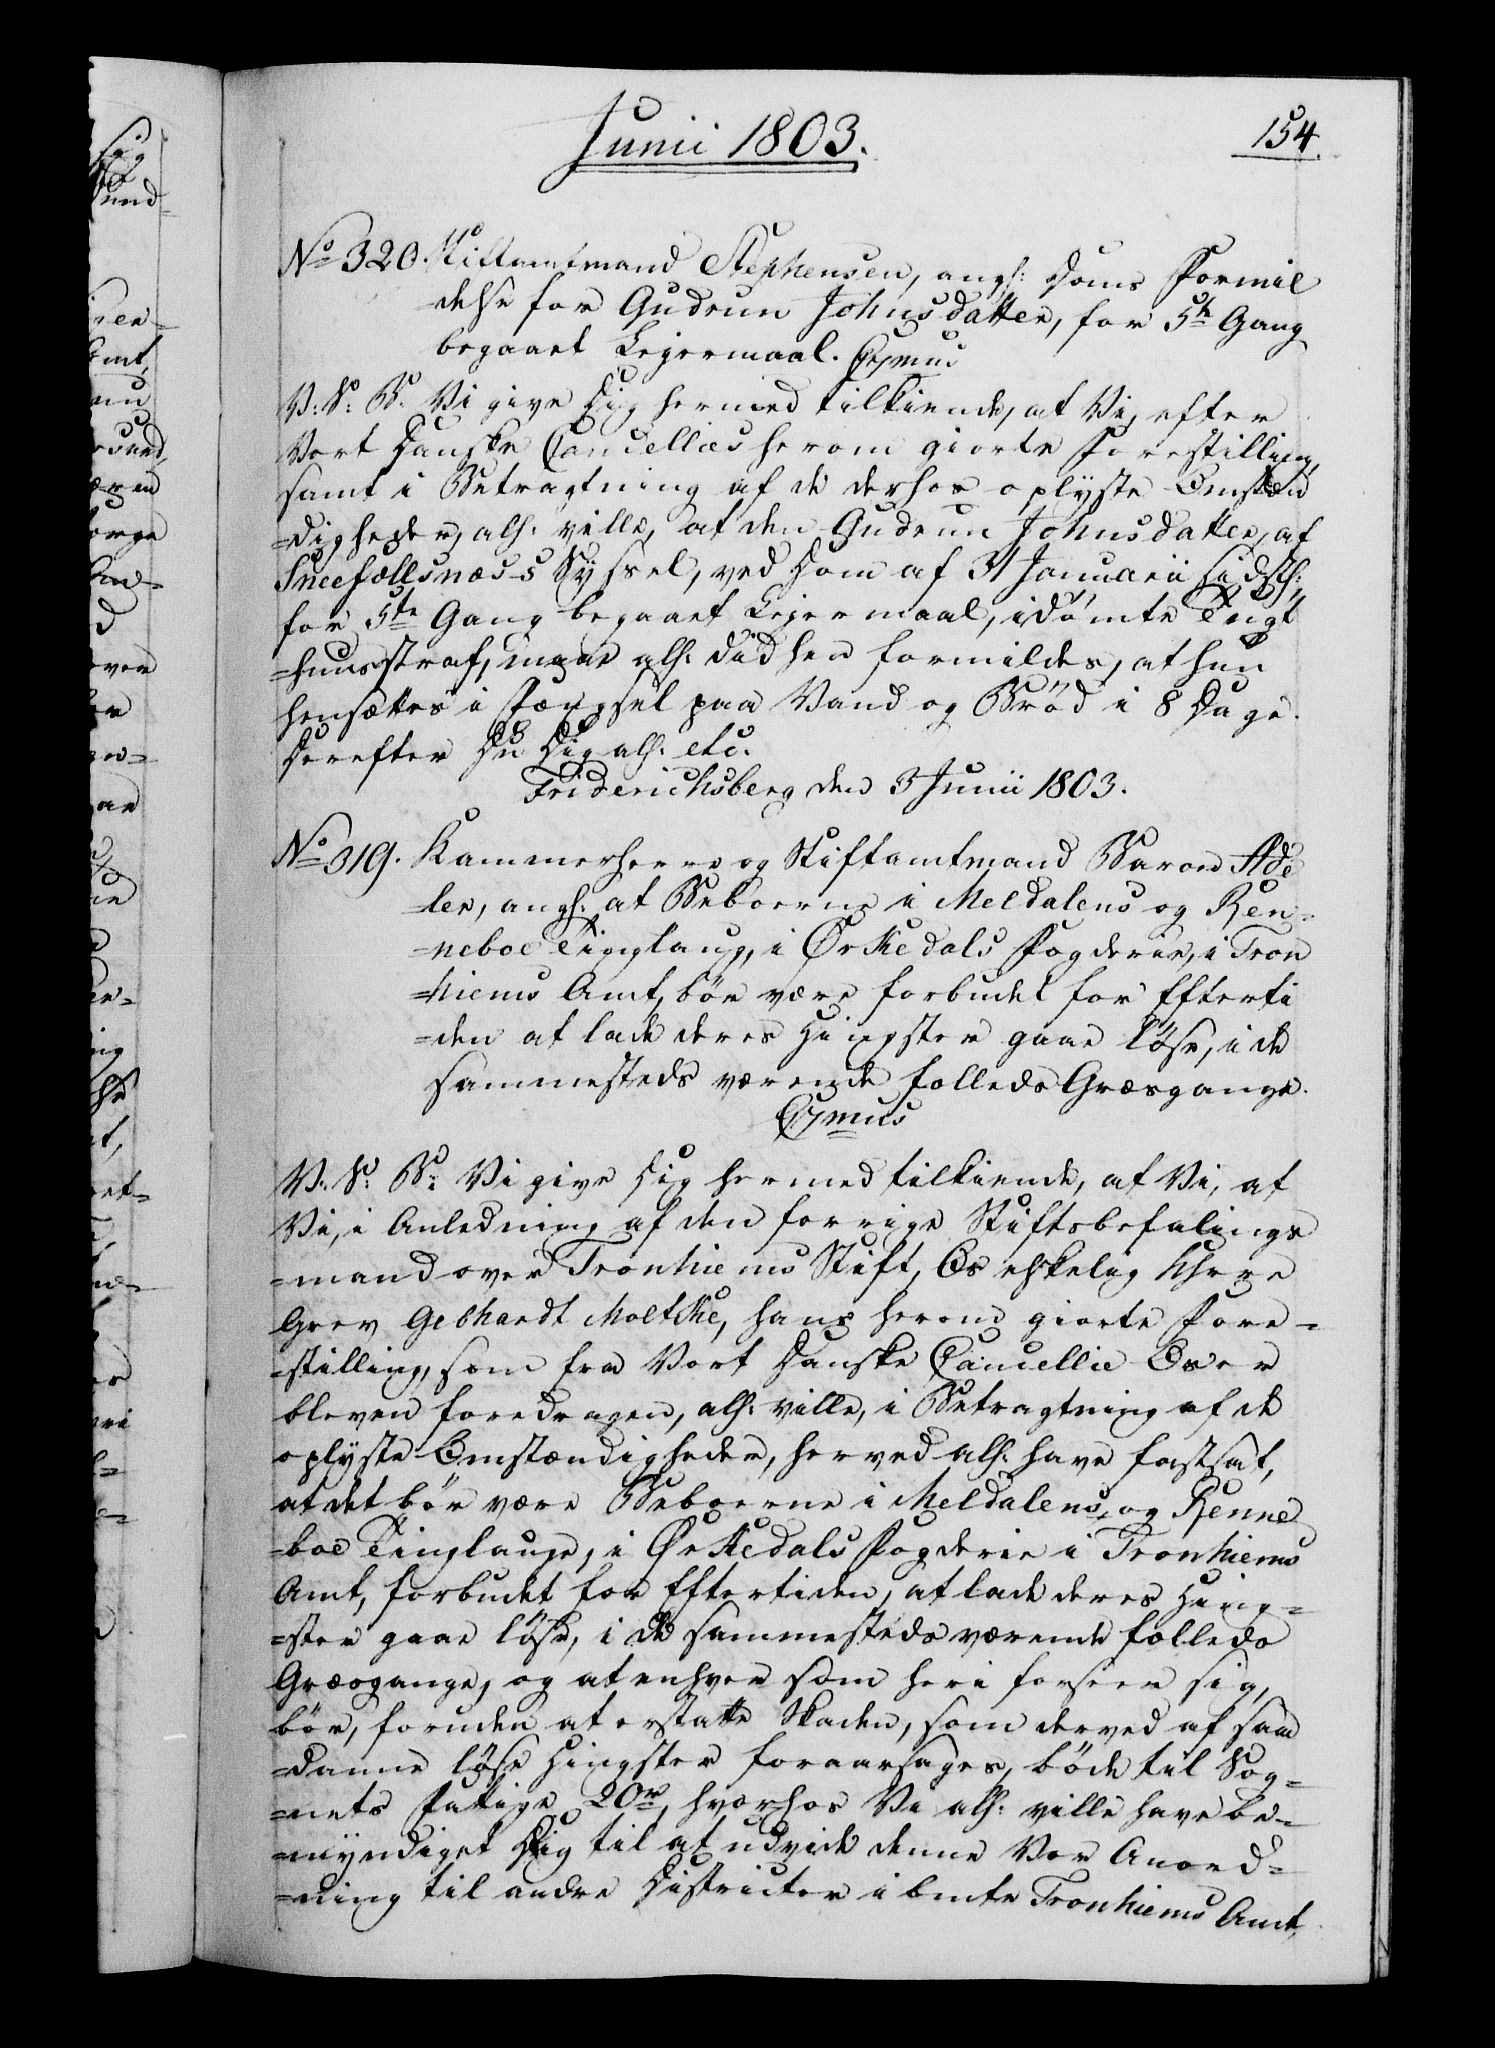 Junii 1803.
154.
No 320. Stiftamtmand Stephensen, angl: Doms Formil
delse for Gudrun Johnsdatter, for 5te Gang
begaaet Lejermaal. C7mus
V: S: B: Vi give Dig hermed tilkiende, at Vi, efter
Vort Danske Cancellies herom giorte Forestilling,
samt i Betragtning af de derhos oplyste Omstæn
=digheder, alh: ville, at den Gudrun Johnsdatter, af
Sneefællsnæs-s Syssel, ved Dom af 31 Januarii sidsth:
for 5te Gang begaaet Lejermaal, idømte Tugt
=huusstraf, maae alh: dådhen formildes, at hun
hensættes i Fængsel paa Vand og Brød i 8 Dage.
Derefter Du Dig alh: etc.
Friderichsberg den 3 Junii 1803.
No 319. Kammerherre og Stiftamtmand Baron Ade
=ler, angl: at Beboerne i Meldalens og Ren=
=neboe Tinglaug, i Ørkedals Fogderie, i Tron
=hiems Amt, bør være forbudet for Efterti
=den at lade deres Hingster gaae løse, i de
sammesteds værende fælleds Græsgange.
C7mus
V: S: B: Vi give Dig hermed tilkiende, at Vi, at
Vi, i Anledning af den forrige Stiftsbefalings
=mand over Tronhiems Stift, Os elskelig Herre
Grev Gebhardt Moltke, hans herom giorte Fore=
=stilling, som fra Vort Danske Cancellie Os er
bleven foredragen, alh: ville, i Betragtning af de
oplyste Omstændigheder, herved alh: have fastsat,
at det bør være Beboerne i Meldalens, og Renne
=boe Tinglauge, i Ørkedals Fogderie i Tronhiems
Amt, forbudet for Eftertiden, at lade deres Hing=
=ster gaae løse, i de sammesteds værende fælleds
Græsgange, og at enhver som heri forseer sig,
bør, foruden at erstatte Skaden, som derved af saa
=danne løse Hingster foraarsages, bøde til Sog=
=nets Fattige 20r, hvorhos Vi alh: ville have be=
=myndiget Dig til at udvide denne Vor Anord=
=ning til andre Districter i bemte Tronhiems Amt,